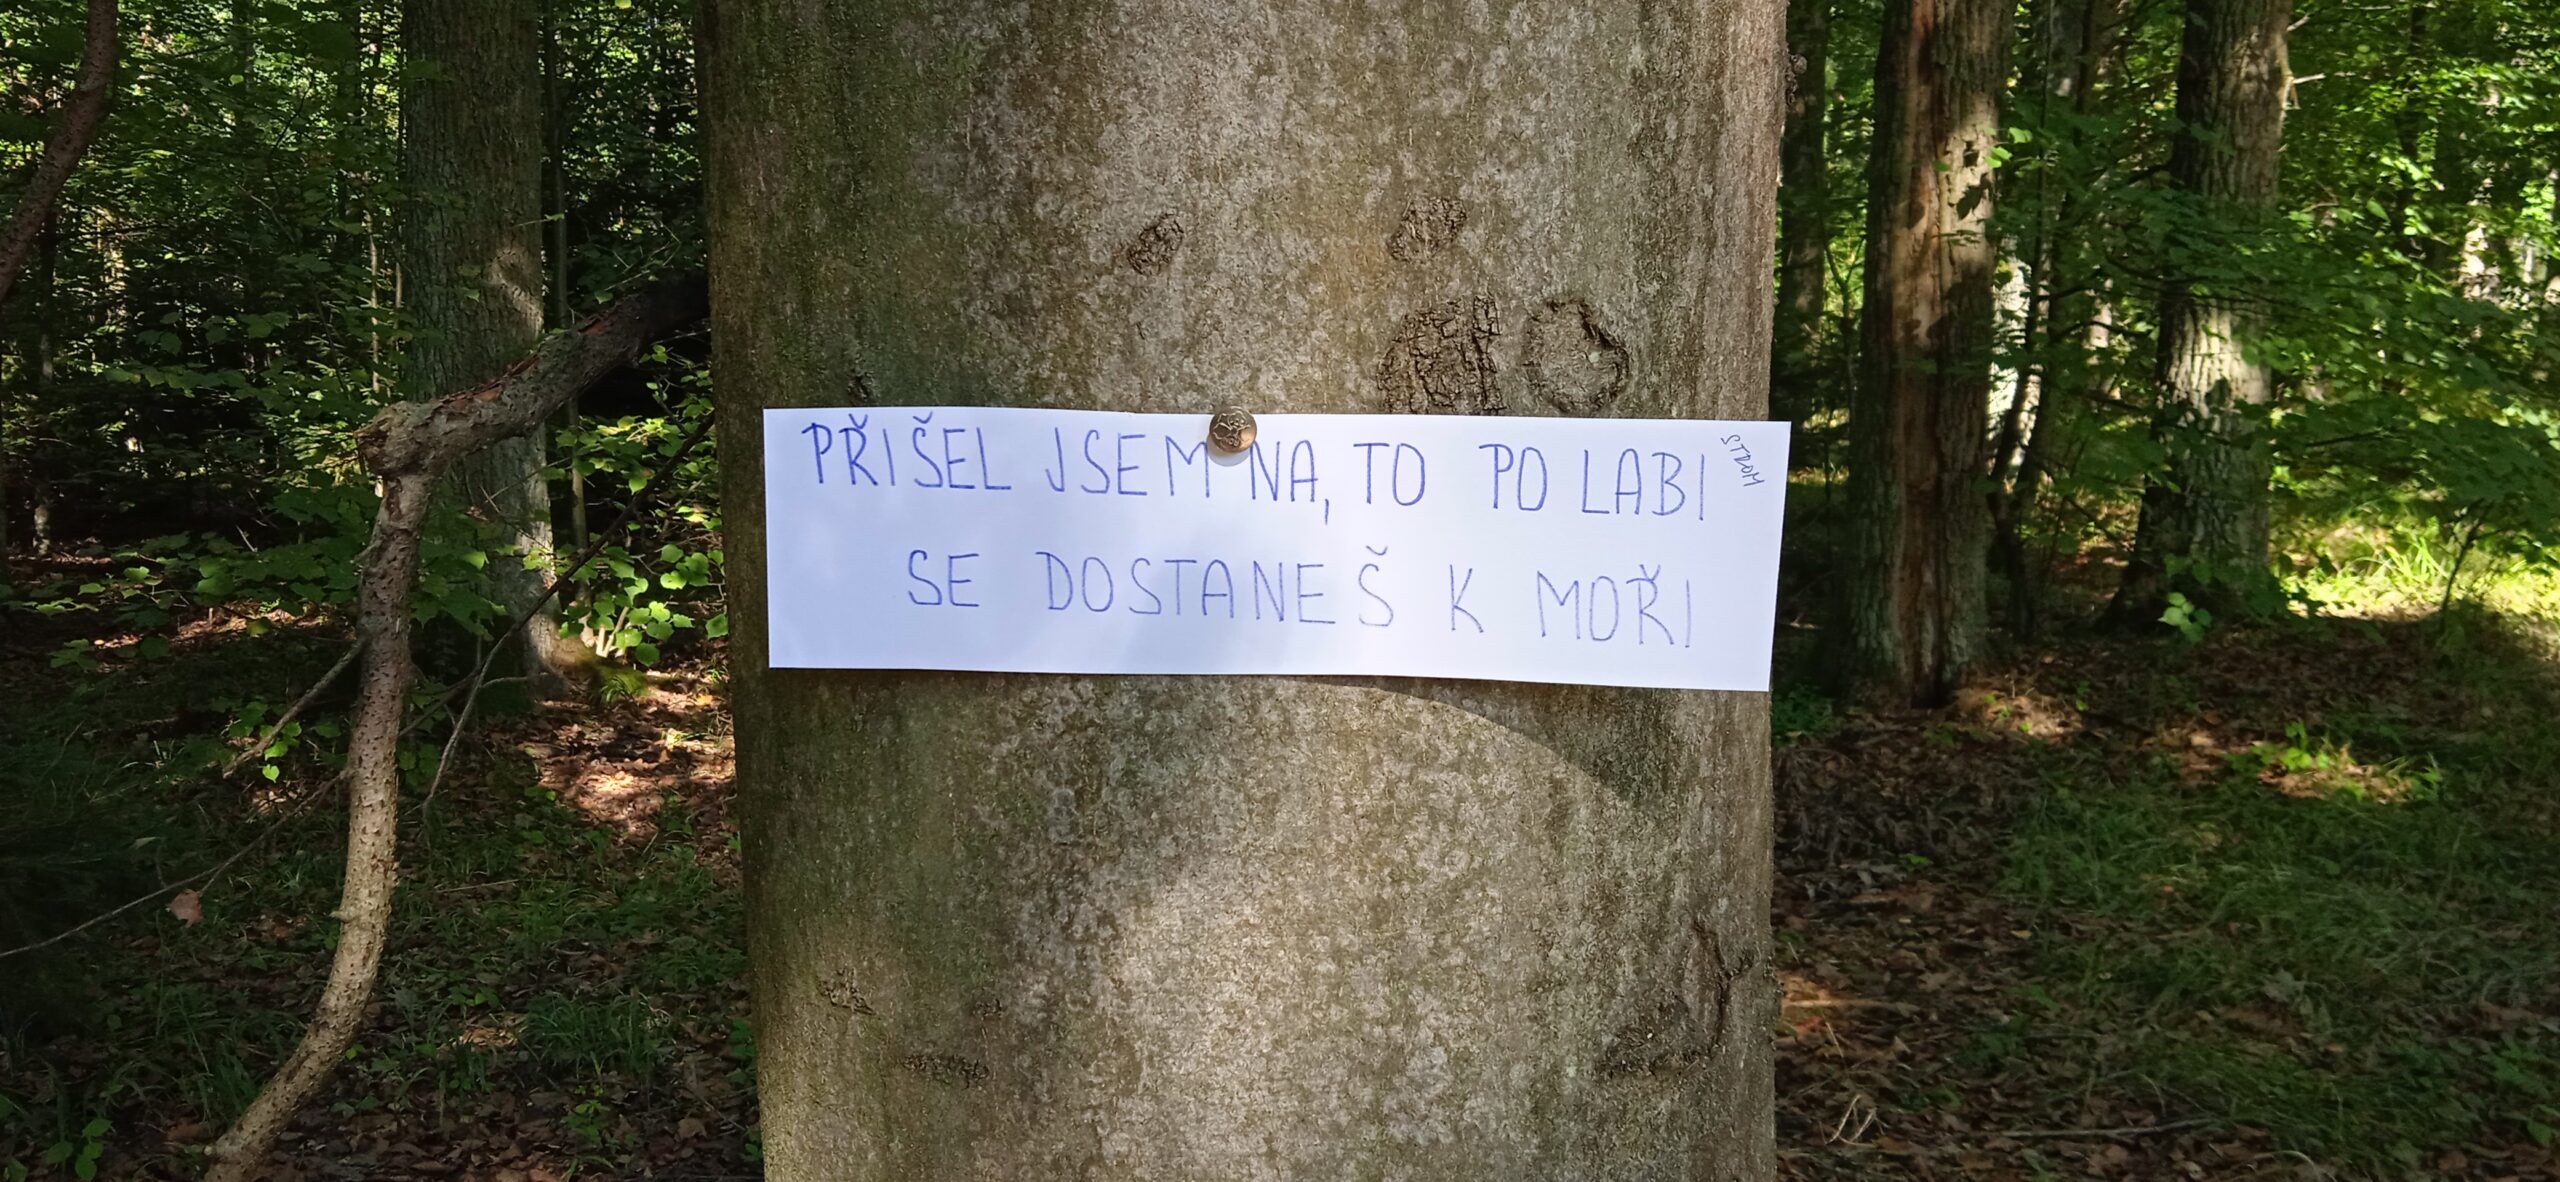 PŘIŠEL JSEM NA, TO PO LABI
SE DOSTANEŠ K MOŘI
STROM